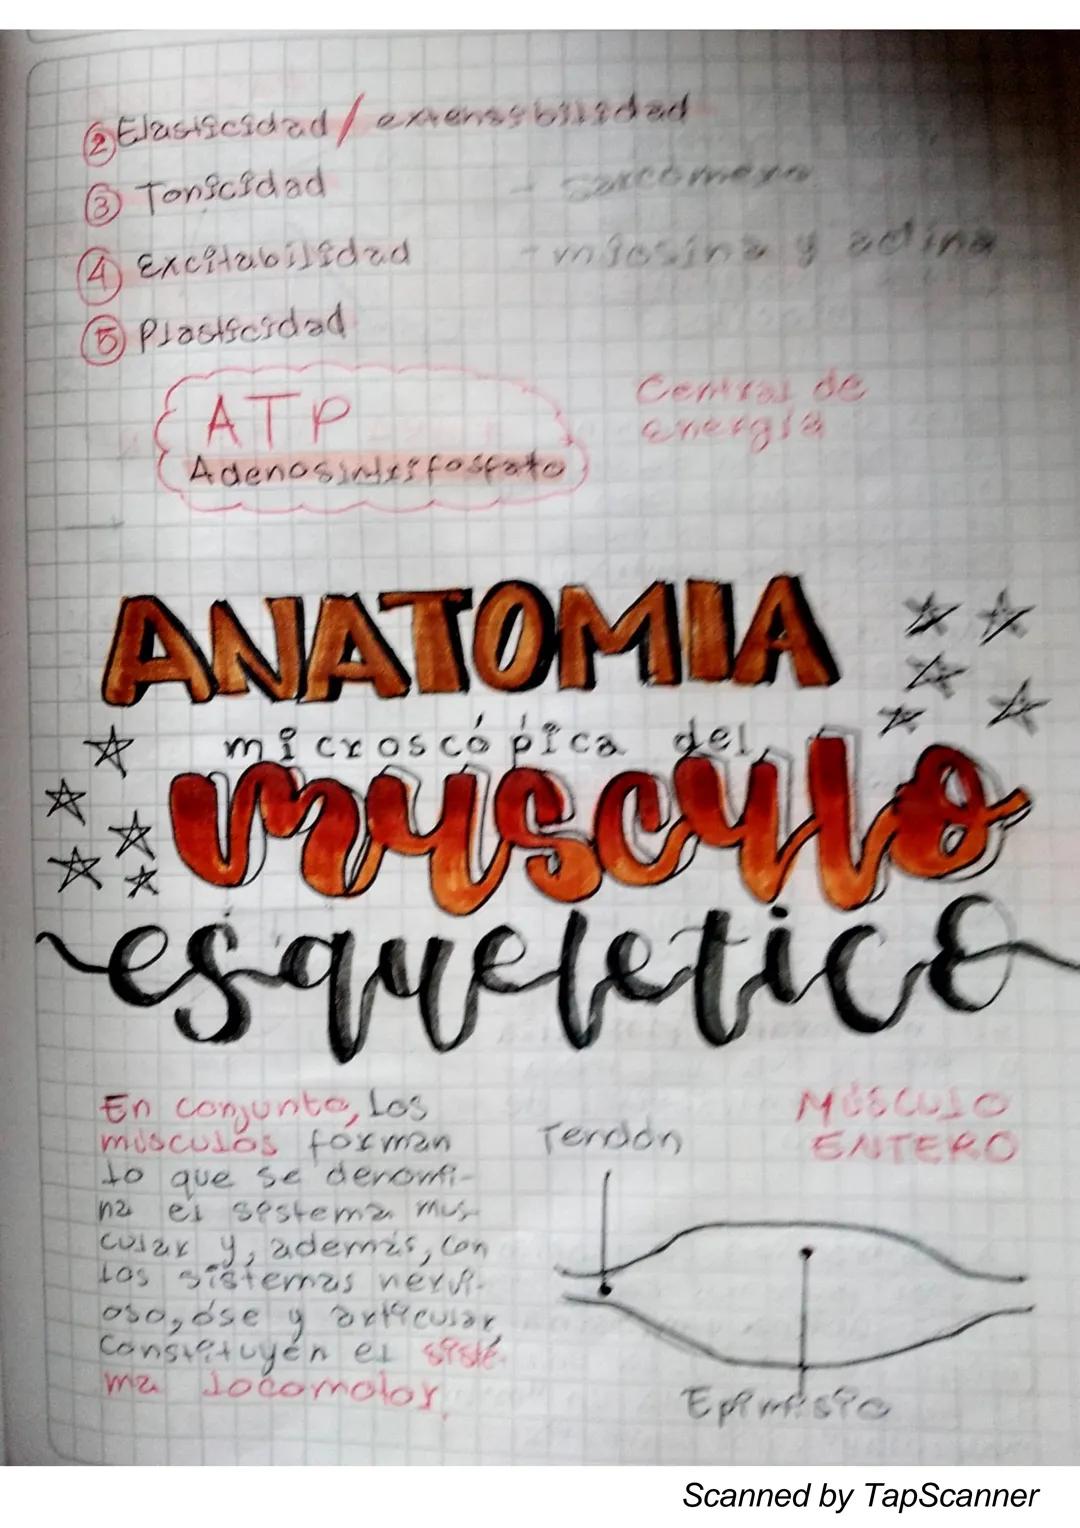 ② Elasticidad / extensibilidad
③ Tonicidad
- sarcomero
④ Excitabilidad
- miosina y actina
⑤ Plasticidad
ATP
Adenosintrifosfato
Central de
energía
ANATOMIA
microscópica del
musculo
esqueletico
En conjunto, los
músculos forman
lo que se denomi-
na el sistema mus-
cular y, además, con
los sistemas nervi-
oso, óse y articular,
Constituyen el siste-
ma locomotor.
Tendón
MÚSCULO
ENTERO
Epimisio
Scanned by TapScanner